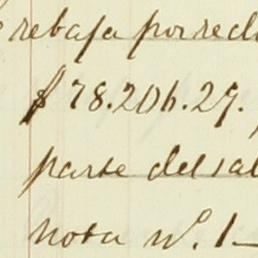 rebaja por red
$ 78.206.29.
parte del sal
nota nº. 1